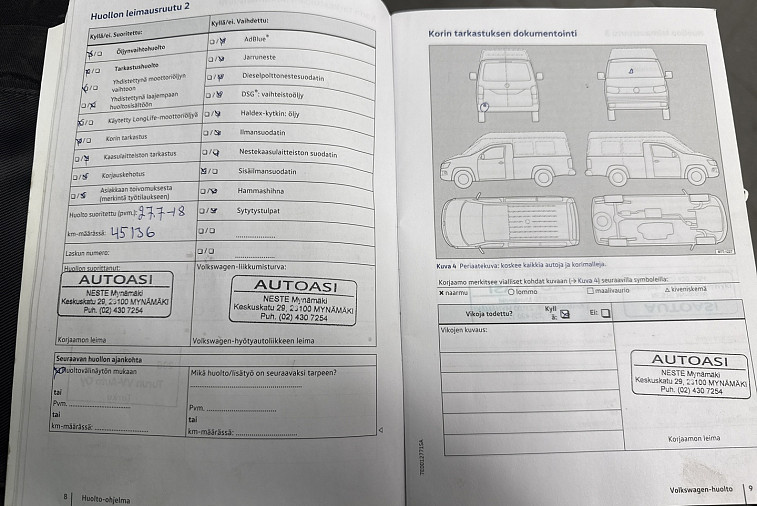 Huollon leimausruutu 2
Kyllä/ei. Suoritettu:
Kyllä/ei. Vaihdettu:
Öljynvaihtohuolto
AdBlue®
Tarkastushuolto
Jarruneste
Yhdistettynä moottoriöljyn
vaihtoon
Dieselpolttonestesuodatin
Yhdistettynä laajempaan
huoltosisältöön
DSG®: vaihteistoöljy
Käytetty LongLife-moottoriöljyä
Haldex-kytkin: öljy
Korin tarkastus
Ilmansuodatin
Kaasulaitteiston tarkastus
Nestekaasulaitteiston suodatin
Korjauskehotus
Sisäilmansuodatin
Asiakkaan toivomuksesta
(merkintä työtilaukseen)
Hammashihna
Huolto suoritettu (pvm.): 27.7-18
Sytytystulpat
km-määrässä: 45136
Laskun numero:
Huollon suorittanut:
Volkswagen-liikkumisturva:
AUTOASI
NESTE Mynämäki
Keskuskatu 29, 23100 MYNÄMÄKI
Puh. (02) 430 7254
AUTOASI
NESTE Mynämäki
Keskuskatu 29, 23100 MYNÄMÄKI
Puh. (02) 430 7254
Korjaamon leima
Volkswagen-hyötyautoliikkeen leima
Seuraavan huollon ajankohta
Huoltovälinäytön mukaan
Mikä huolto/lisätyö on seuraavaksi tarpeen?
tai
Pvm.
Pvm.
tai
tai
km-määrässä:
km-määrässä:
8 Huolto-ohjelma
Korin tarkastuksen dokumentointi
Kuva 4 Periaatekuva: koskee kaikkia autoja ja korimalleja.
Korjaamo merkitsee vialliset kohdat kuvaan (→ Kuva 4) seuraavilla symboleilla:
× naarmu ○ lommo □ maalivaurio △ kiveniskemä
Vikoja todettu? Kyll
ä: Ei:
Vikojen kuvaus:
AUTOASI
NESTE Mynämäki
Keskuskatu 29, 23100 MYNÄMÄKI
Puh. (02) 430 7254
Korjaamon leima
Volkswagen-huolto 9